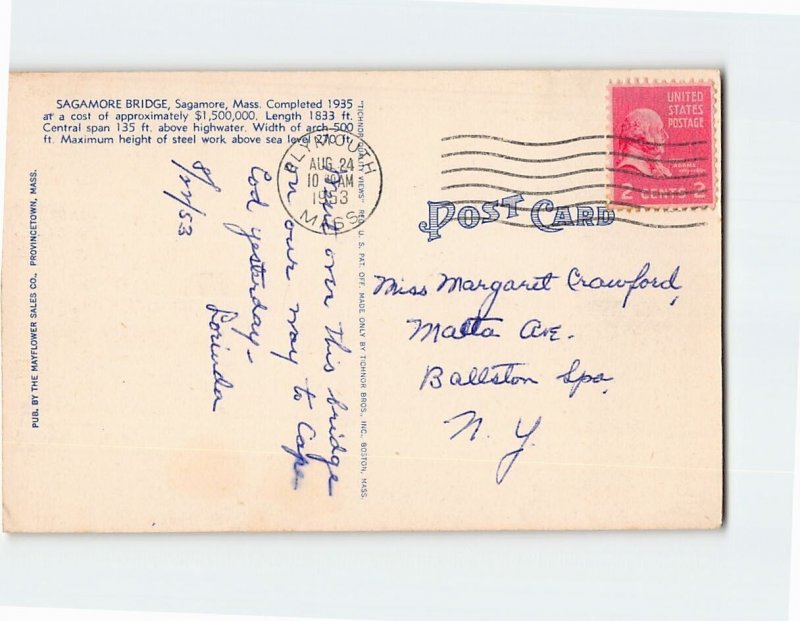 SAGAMORE BRIDGE, Sagamore, Mass. Completed 1935
at a cost of approximately $1,500,000. Length 1833 ft.
Central span 135 ft. above highwater. Width of arch 500
ft. Maximum height of steel work above sea level 270 ft.
PUB. BY THE MAYFLOWER SALES CO., PROVINCETOWN, MASS.
8/24/53
Went over this bridge
on our way to Cape
Cod yesterday -
Lorinda
"TICHNOR QUALITY VIEWS" REG. U. S. PAT. OFF. MADE ONLY BY TICHNOR BROS., INC., BOSTON, MASS.
PLYMOUTH
AUG 24
10 AM
1953
MASS.
UNITED
STATES
POSTAGE
ADAMS
2 CENTS 2
POST CARD
Miss Margaret Crawford,
Malta Ave.
Ballston Spa
N. Y.